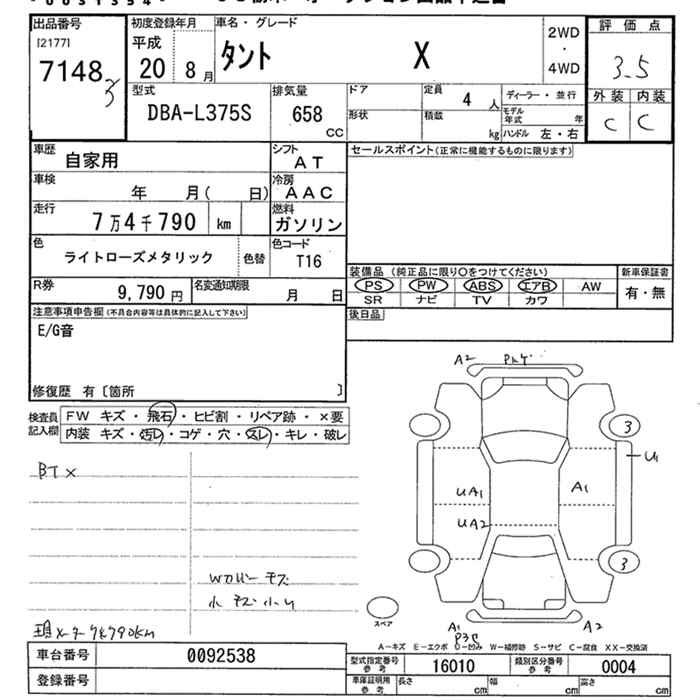 出品番号 初度登録年月 車名・グレード 2WD 評価点
[2177] 平成 タント X ・ 3.5
7148 20 8月 4WD
3
型式 排気量 ドア 定員 4人 ディーラー・並行 外装 内装
DBA-L375S 658 CC 形状 積載 kg モデル年式 年 C C
ハンドル 左・右
車歴 自家用 シフト AT セールスポイント(正常に機能するものに限ります)
車検 年 月( 日) 冷房 AAC
走行 7万4千790 km 燃料 ガソリン
色 ライトローズメタリック 色替 色コード T16
装備品(純正品に限り○をつけてください) 新車保証書
R券 9,790円 名変通知期限 月 日 PS PW ABS エアB AW 有・無
SR ナビ TV カワ
注意事項申告欄(不具合内容等は具体的に記入して下さい) 後日品
E/G音
修復歴 有〔箇所 〕
検査員記入欄 FW キズ・飛石・ヒビ割・リペア跡・×要
内装 キズ・汚レ・コゲ・穴・スレ・キレ・破レ
A2
3
U1
BT×
UA1 A1
UA2
3
小キズ小U
スペア
A1 A2
A-キズ E-エクボ U-凹み W-補修跡 S-サビ C-腐食 XX-交換済
車台番号 0092538 型式指定番号参考 16010 類別区分番号参考 0004
登録番号 車庫証明用参考 長さ cm 幅 cm 高さ cm